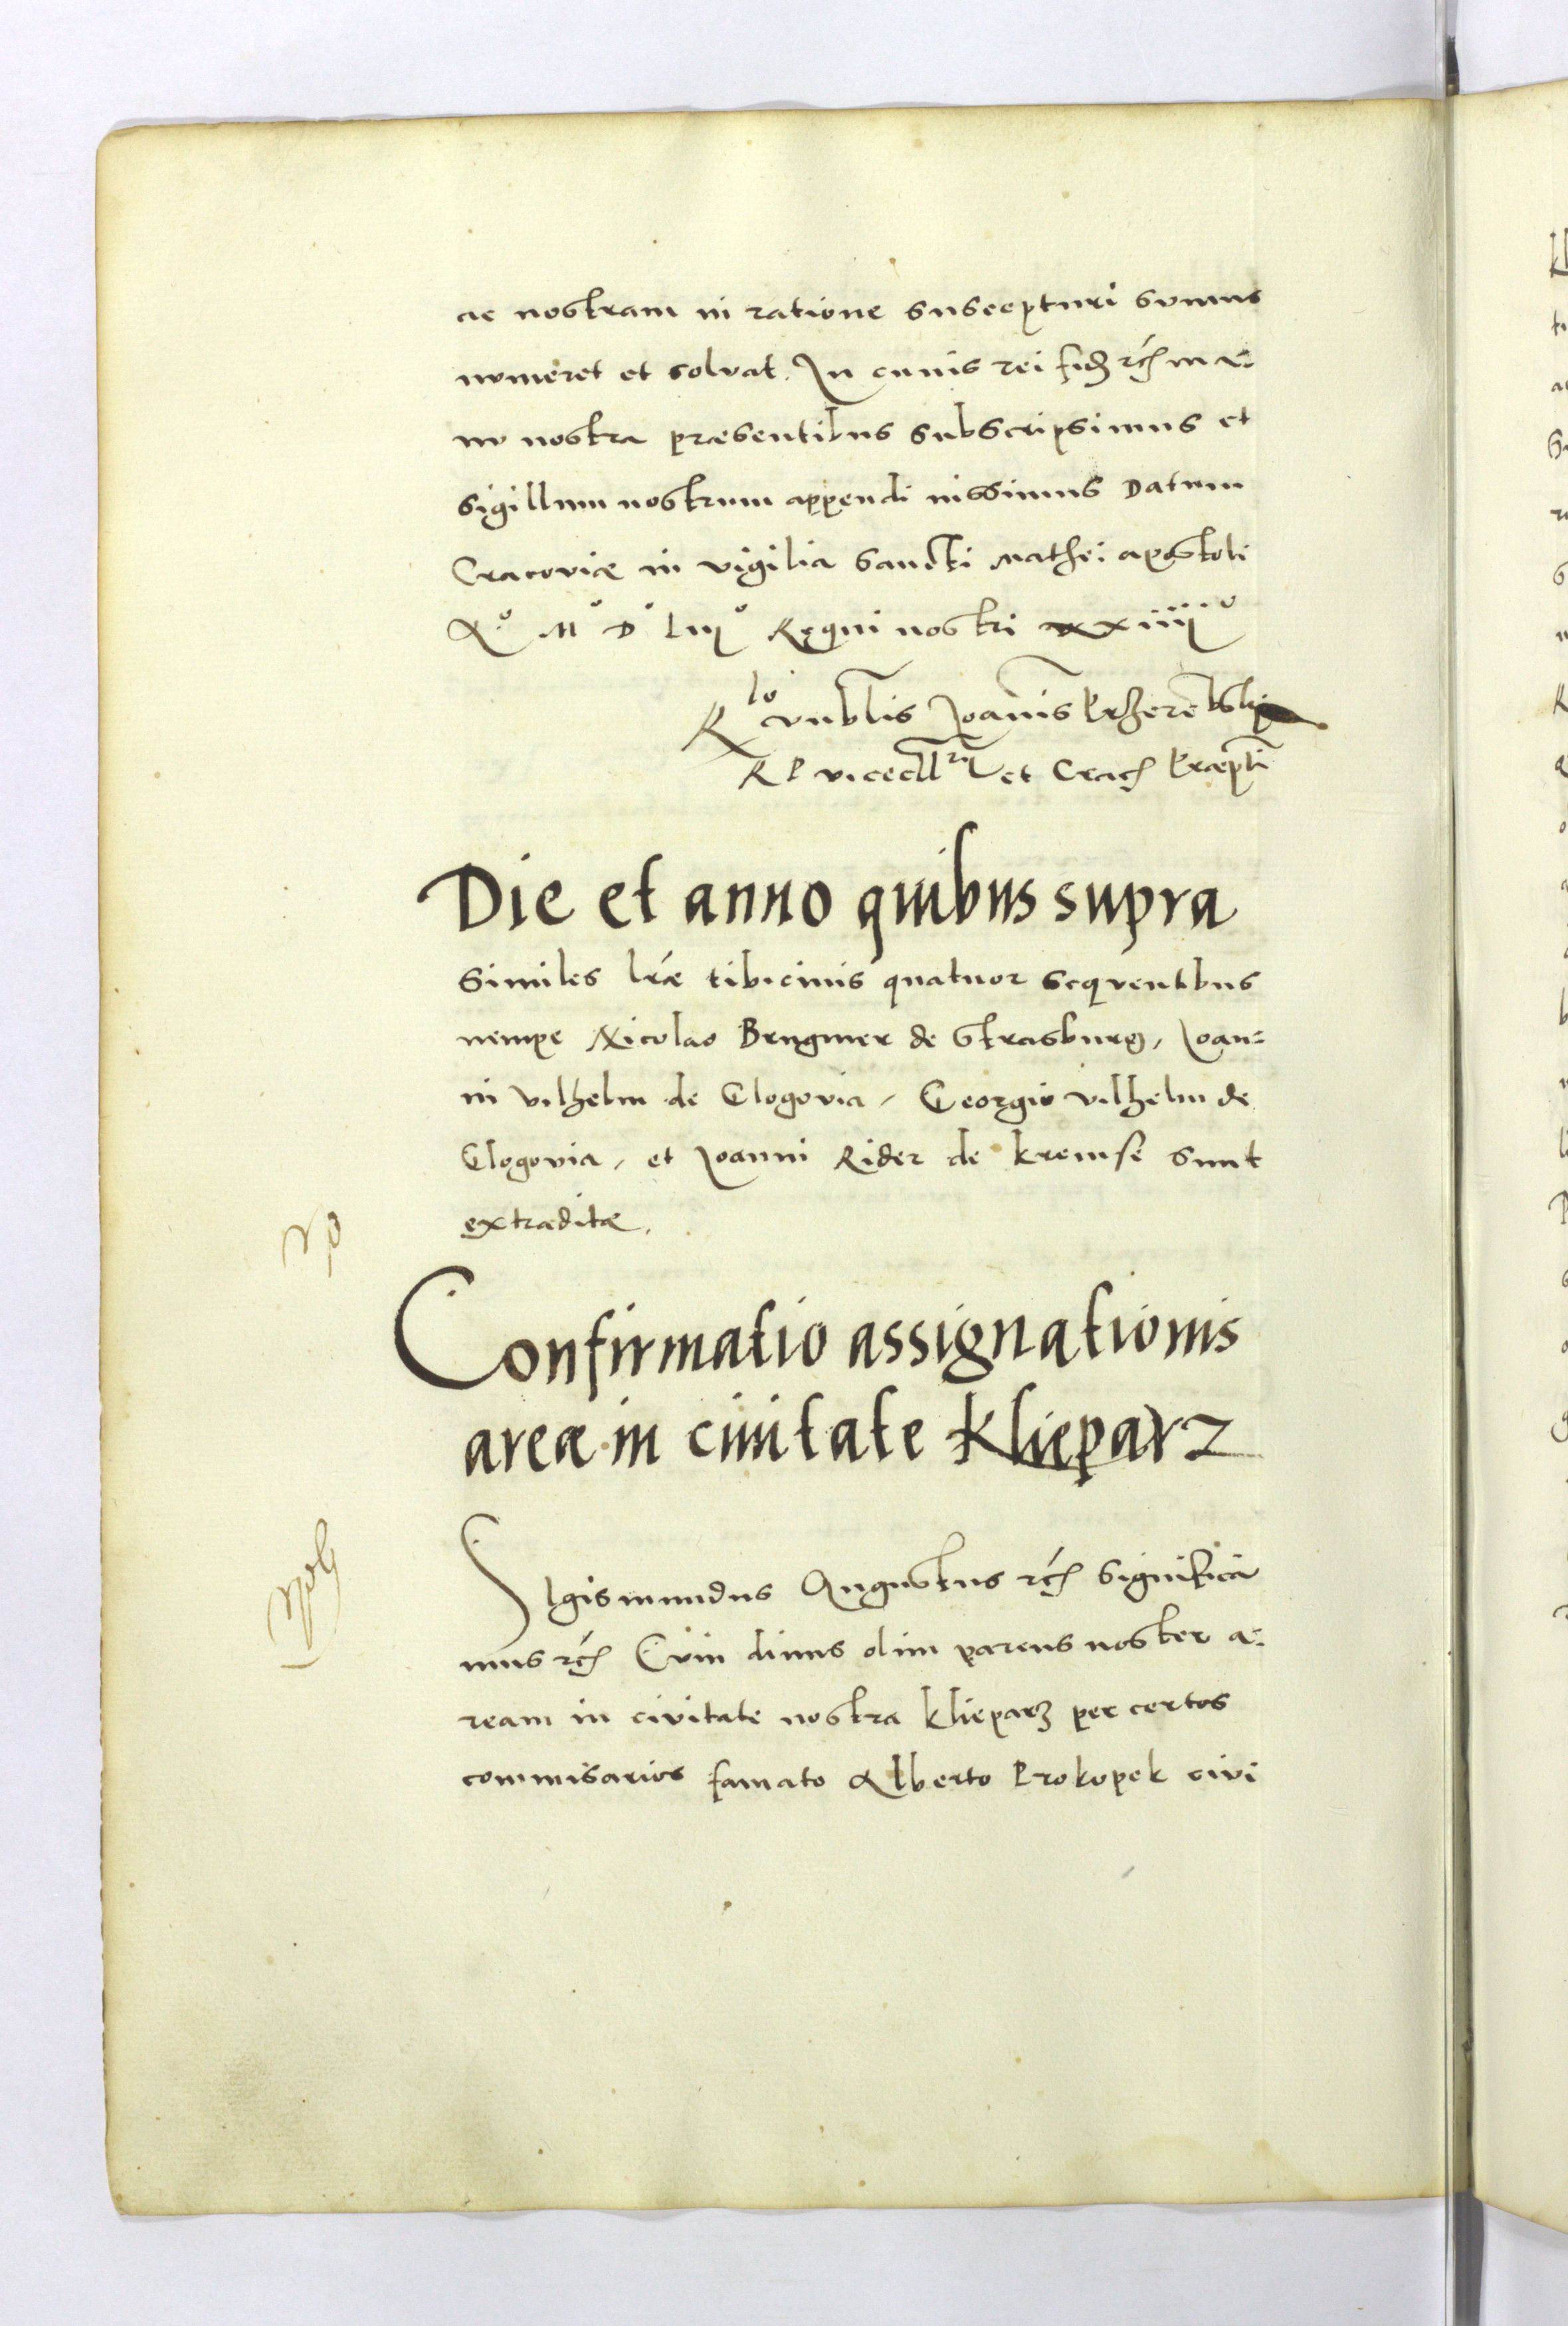 ac nostram in ratione suscepturi sumus
numeret et solvat. In cuuis rei fidẽ rc̃ ma-
nu nostra præsentibus subscripsimus et
sigillum nostrum appendi iussimus Datum
Cracoviæ in vigilia Sancti Mathei apostoli
A.º Mº Dº Liijº Regni nostri xxiiijº
Rlo vnblis Joannis Przerebski
R P vicecll[rii] et Crac̃ Præpti
Die et anno quibus supra
Similes lræ tibicinis quatuor sequentibus
nempe Nicolao Brugmer de Strasburg, Joan-
ni Vilhelm de Glogovia, Georgio Vilhelm de
Glogovia, et Joanni Rider de Kremse sunt
extraditæ.
Confirmatio assignationis
areæ in ciuitate Klieparz
Sigismundus Augustus rc̃ Significa
mus rc̃ Cum diuus olim parens noster a-
ream in civitate nostra Klieparz per certos
commisarios famato Alberto Prokopek civi